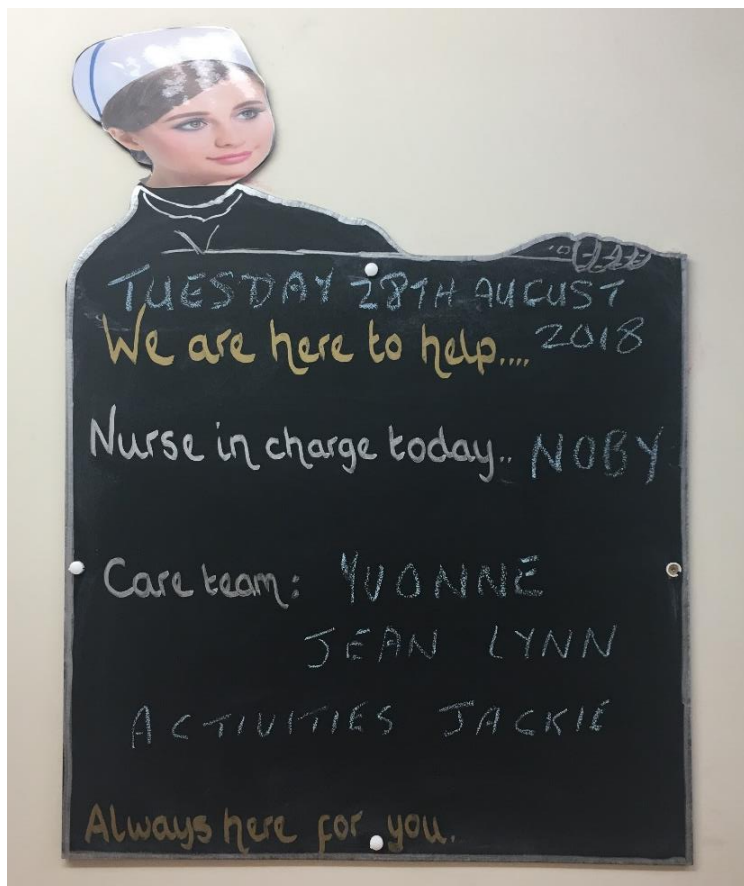 TUESDAY 28TH AUGUST
2018
We are here to help....
Nurse in charge today.. NOBY
Care team: YVONNE
JEAN LYNN
ACTIVITIES JACKIE
Always here for you.